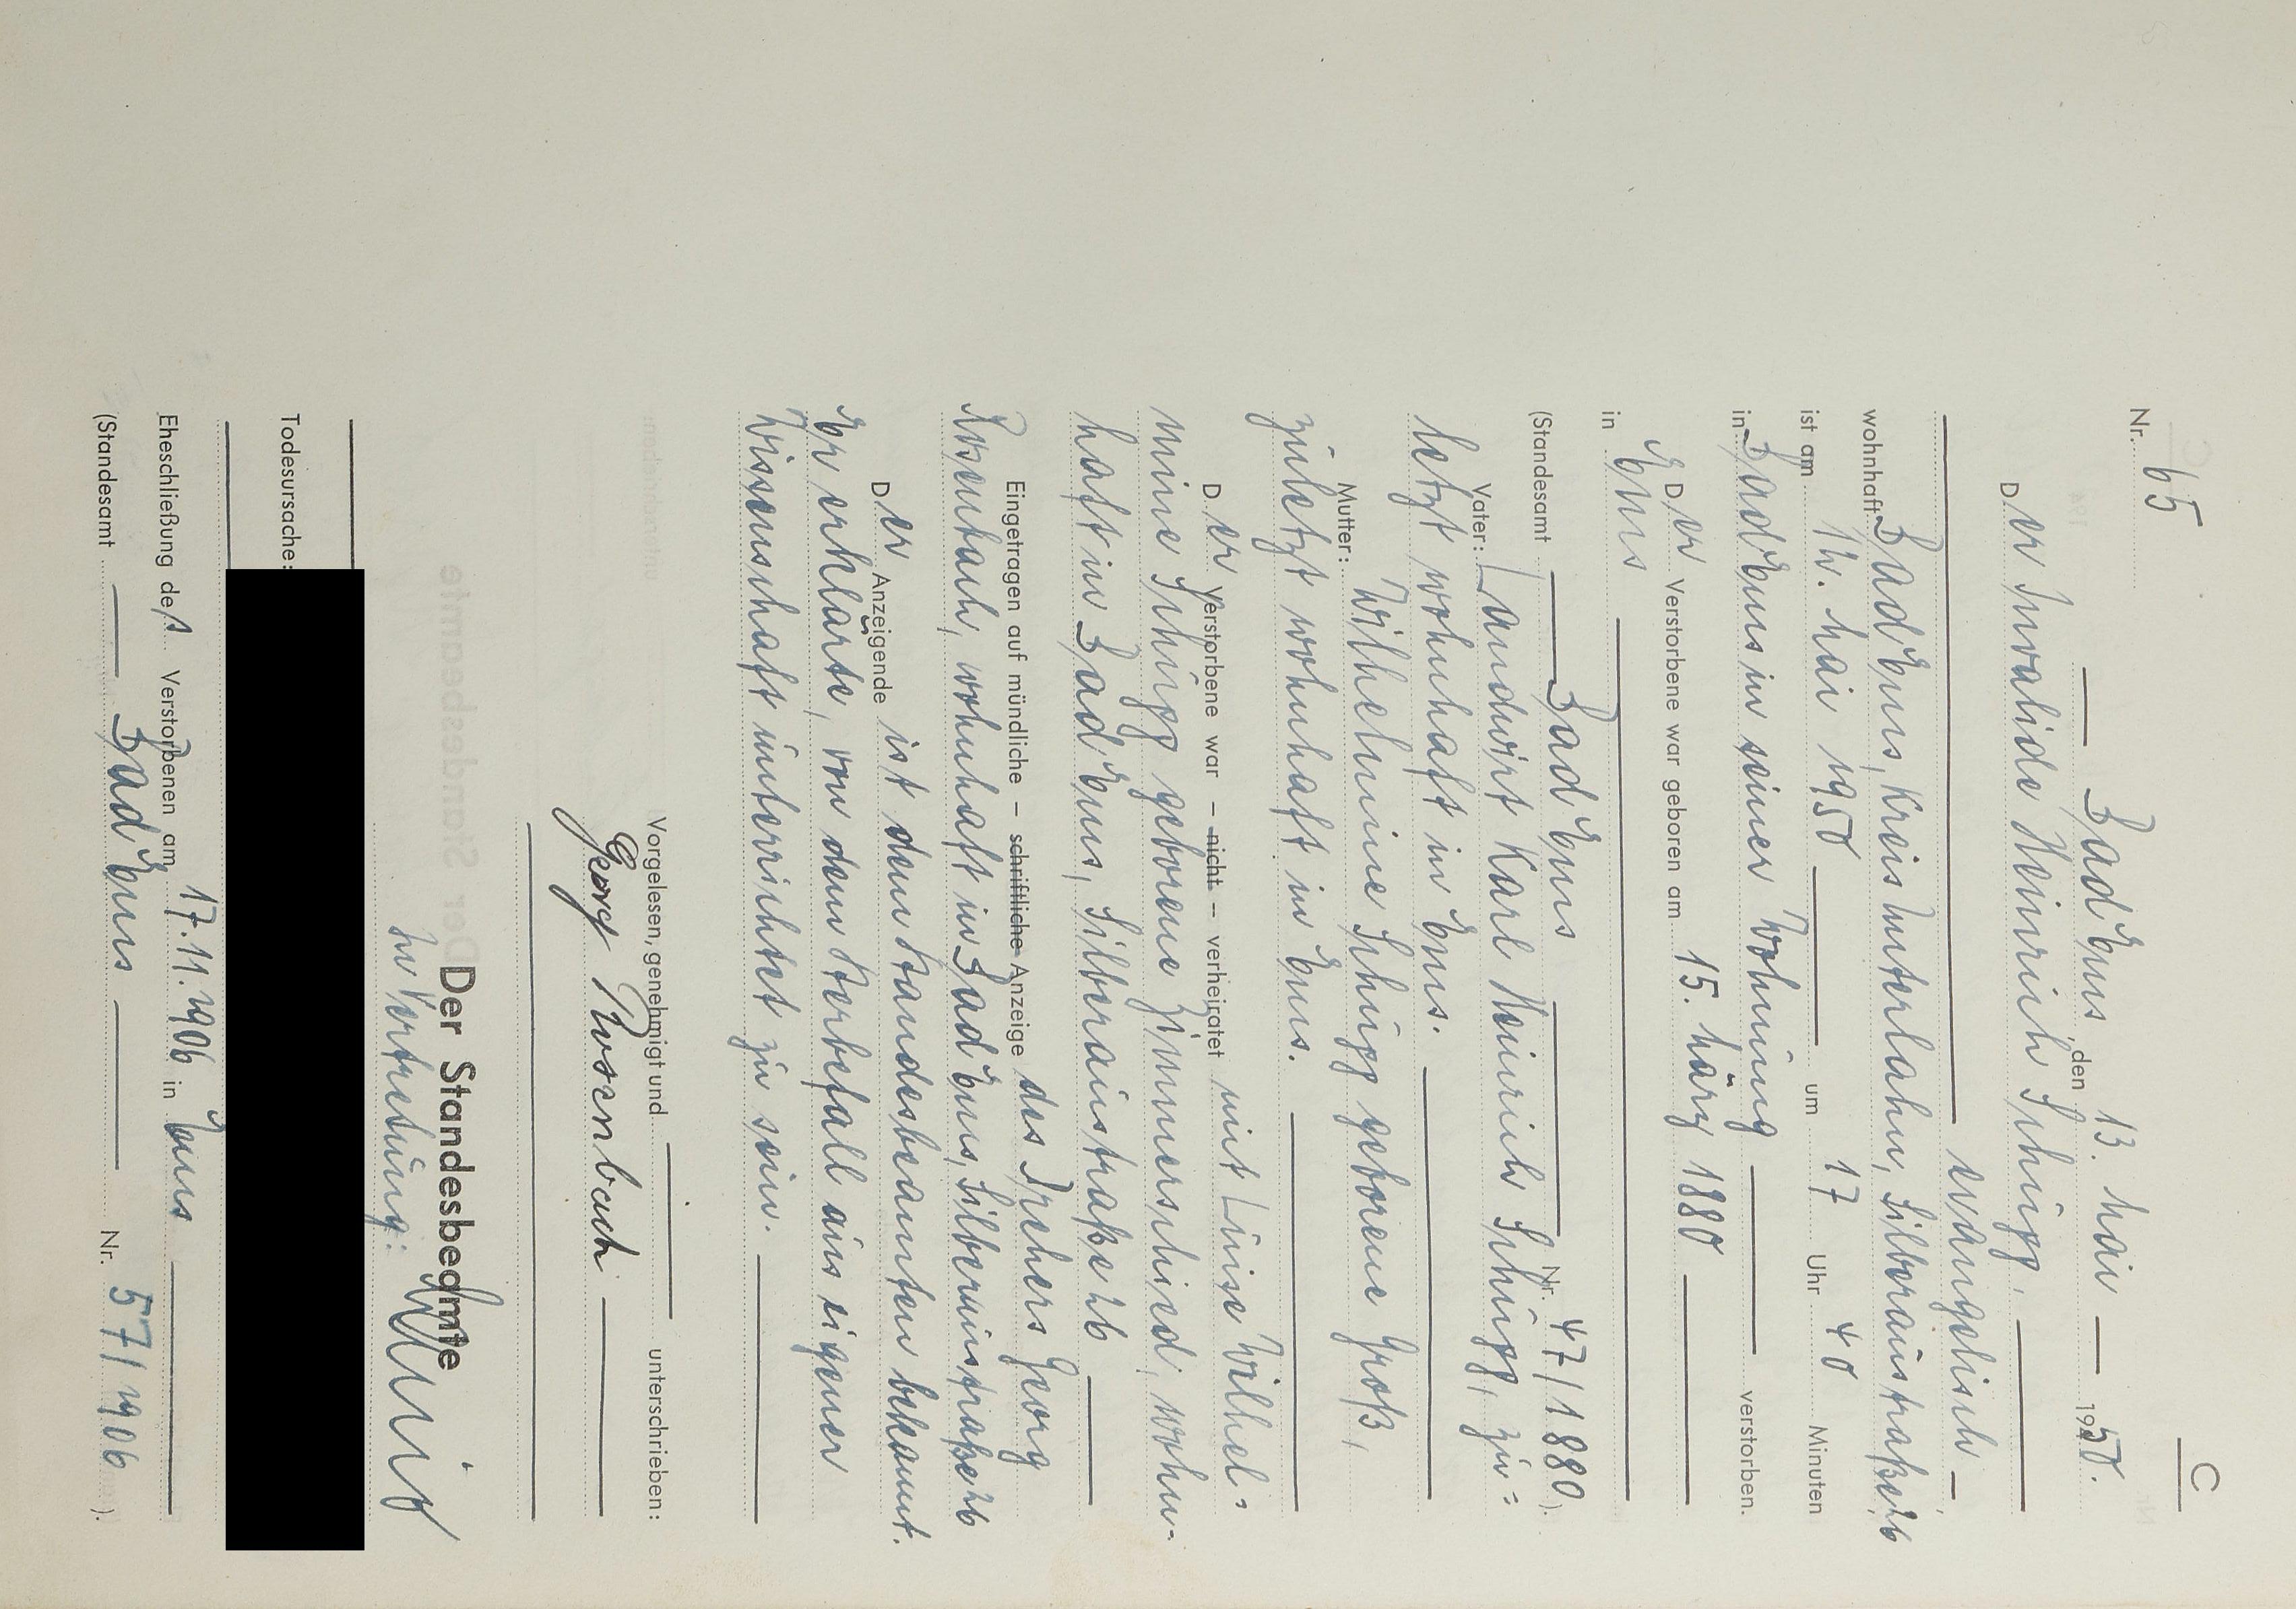 C
Nr. 65
Bad Ems, den 13. Mai 1950.
Der Invalide Heinrich Schupp,
evangelisch
wohnhaft Bad Ems, Kreis Unterlahn, Silberaustraße 26
ist am 12. Mai 1950 um 17 Uhr 40 Minuten
in Bad Ems in seiner Wohnung verstorben.
Der Verstorbene war geboren am 15. März 1880
in Ems
(Standesamt Bad Ems Nr. 47/1880).
Vater: Landwirt Karl Heinrich Schupp, zu=
letzt wohnhaft in Ems.
Mutter: Wilhelmine Schupp geborene Groß,
zuletzt wohnhaft in Ems.
Der Verstorbene war – nicht – verheiratet mit Luise Wilhel=
mine Schupp geborene Zimmerschied, wohn-
haft in Bad Ems, Silberaustraße 26
Eingetragen auf mündliche – schriftliche Anzeige des Drehers Georg
Rosenbach, wohnhaft in Bad Ems, Silberaustraße 26
Der Anzeigende ist dem Standesbeamten bekannt.
Er erklärte, von dem Sterbefall aus eigener
Wissenschaft unterrichtet zu sein.
Vorgelesen, genehmigt und unterschrieben:
Georg Rosenbach
Der Standesbeamte
In Vertretung:
Todesursache:
Eheschließung des Verstorbenen am 17.11.1906 in Ems
(Standesamt Bad Ems Nr. 57/1906).